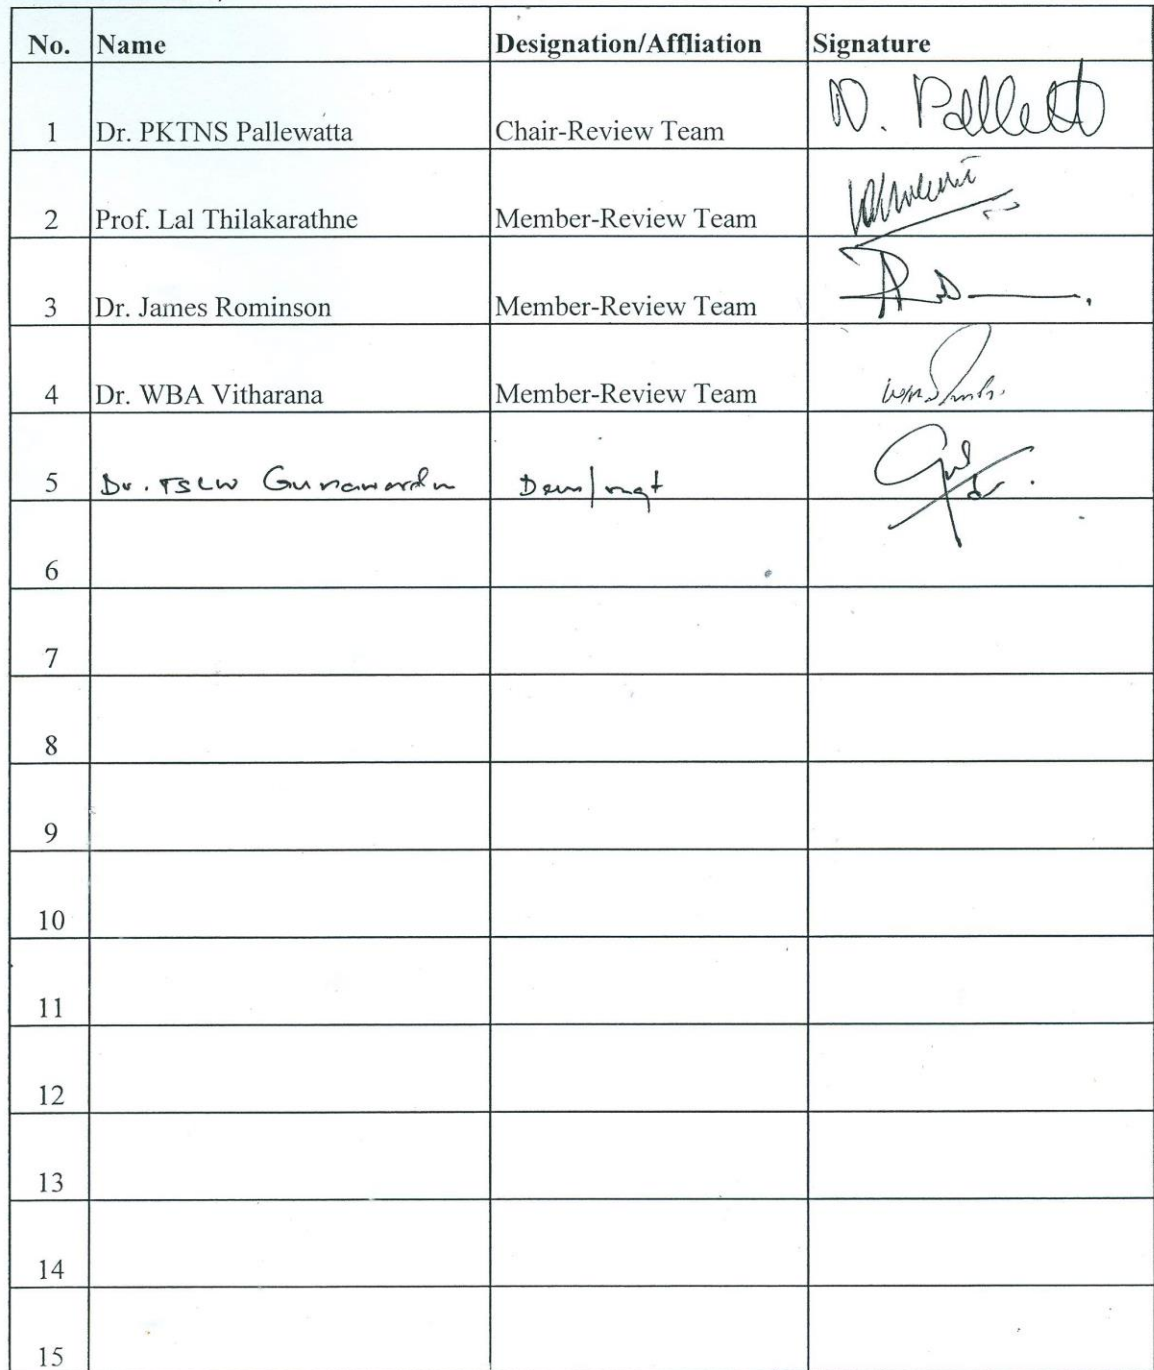 No. Name Designation/Affliation Signature
1 Dr. PKTNS Pallewatta Chair-Review Team N. Pallett
2 Prof. Lal Thilakarathne Member-Review Team
3 Dr. James Rominson Member-Review Team
4 Dr. WBA Vitharana Member-Review Team
5 Dr. TSLW Gunawardn
6
7
8
9
10
11
12
13
14
15